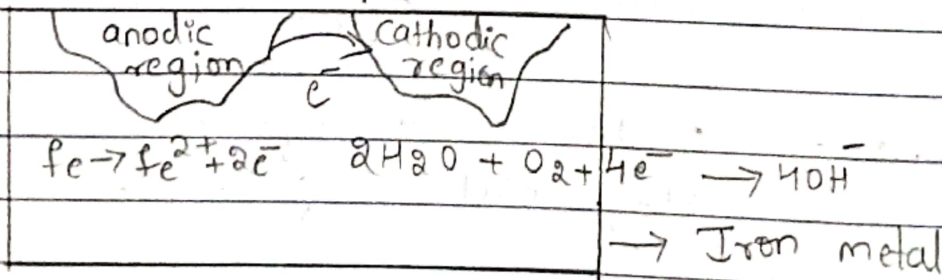 anodic region
cathodic region
e⁻
fe → fe²⁺ + 2e⁻
2H2O + O2 + 4e⁻ → 4OH⁻
→ Iron metal